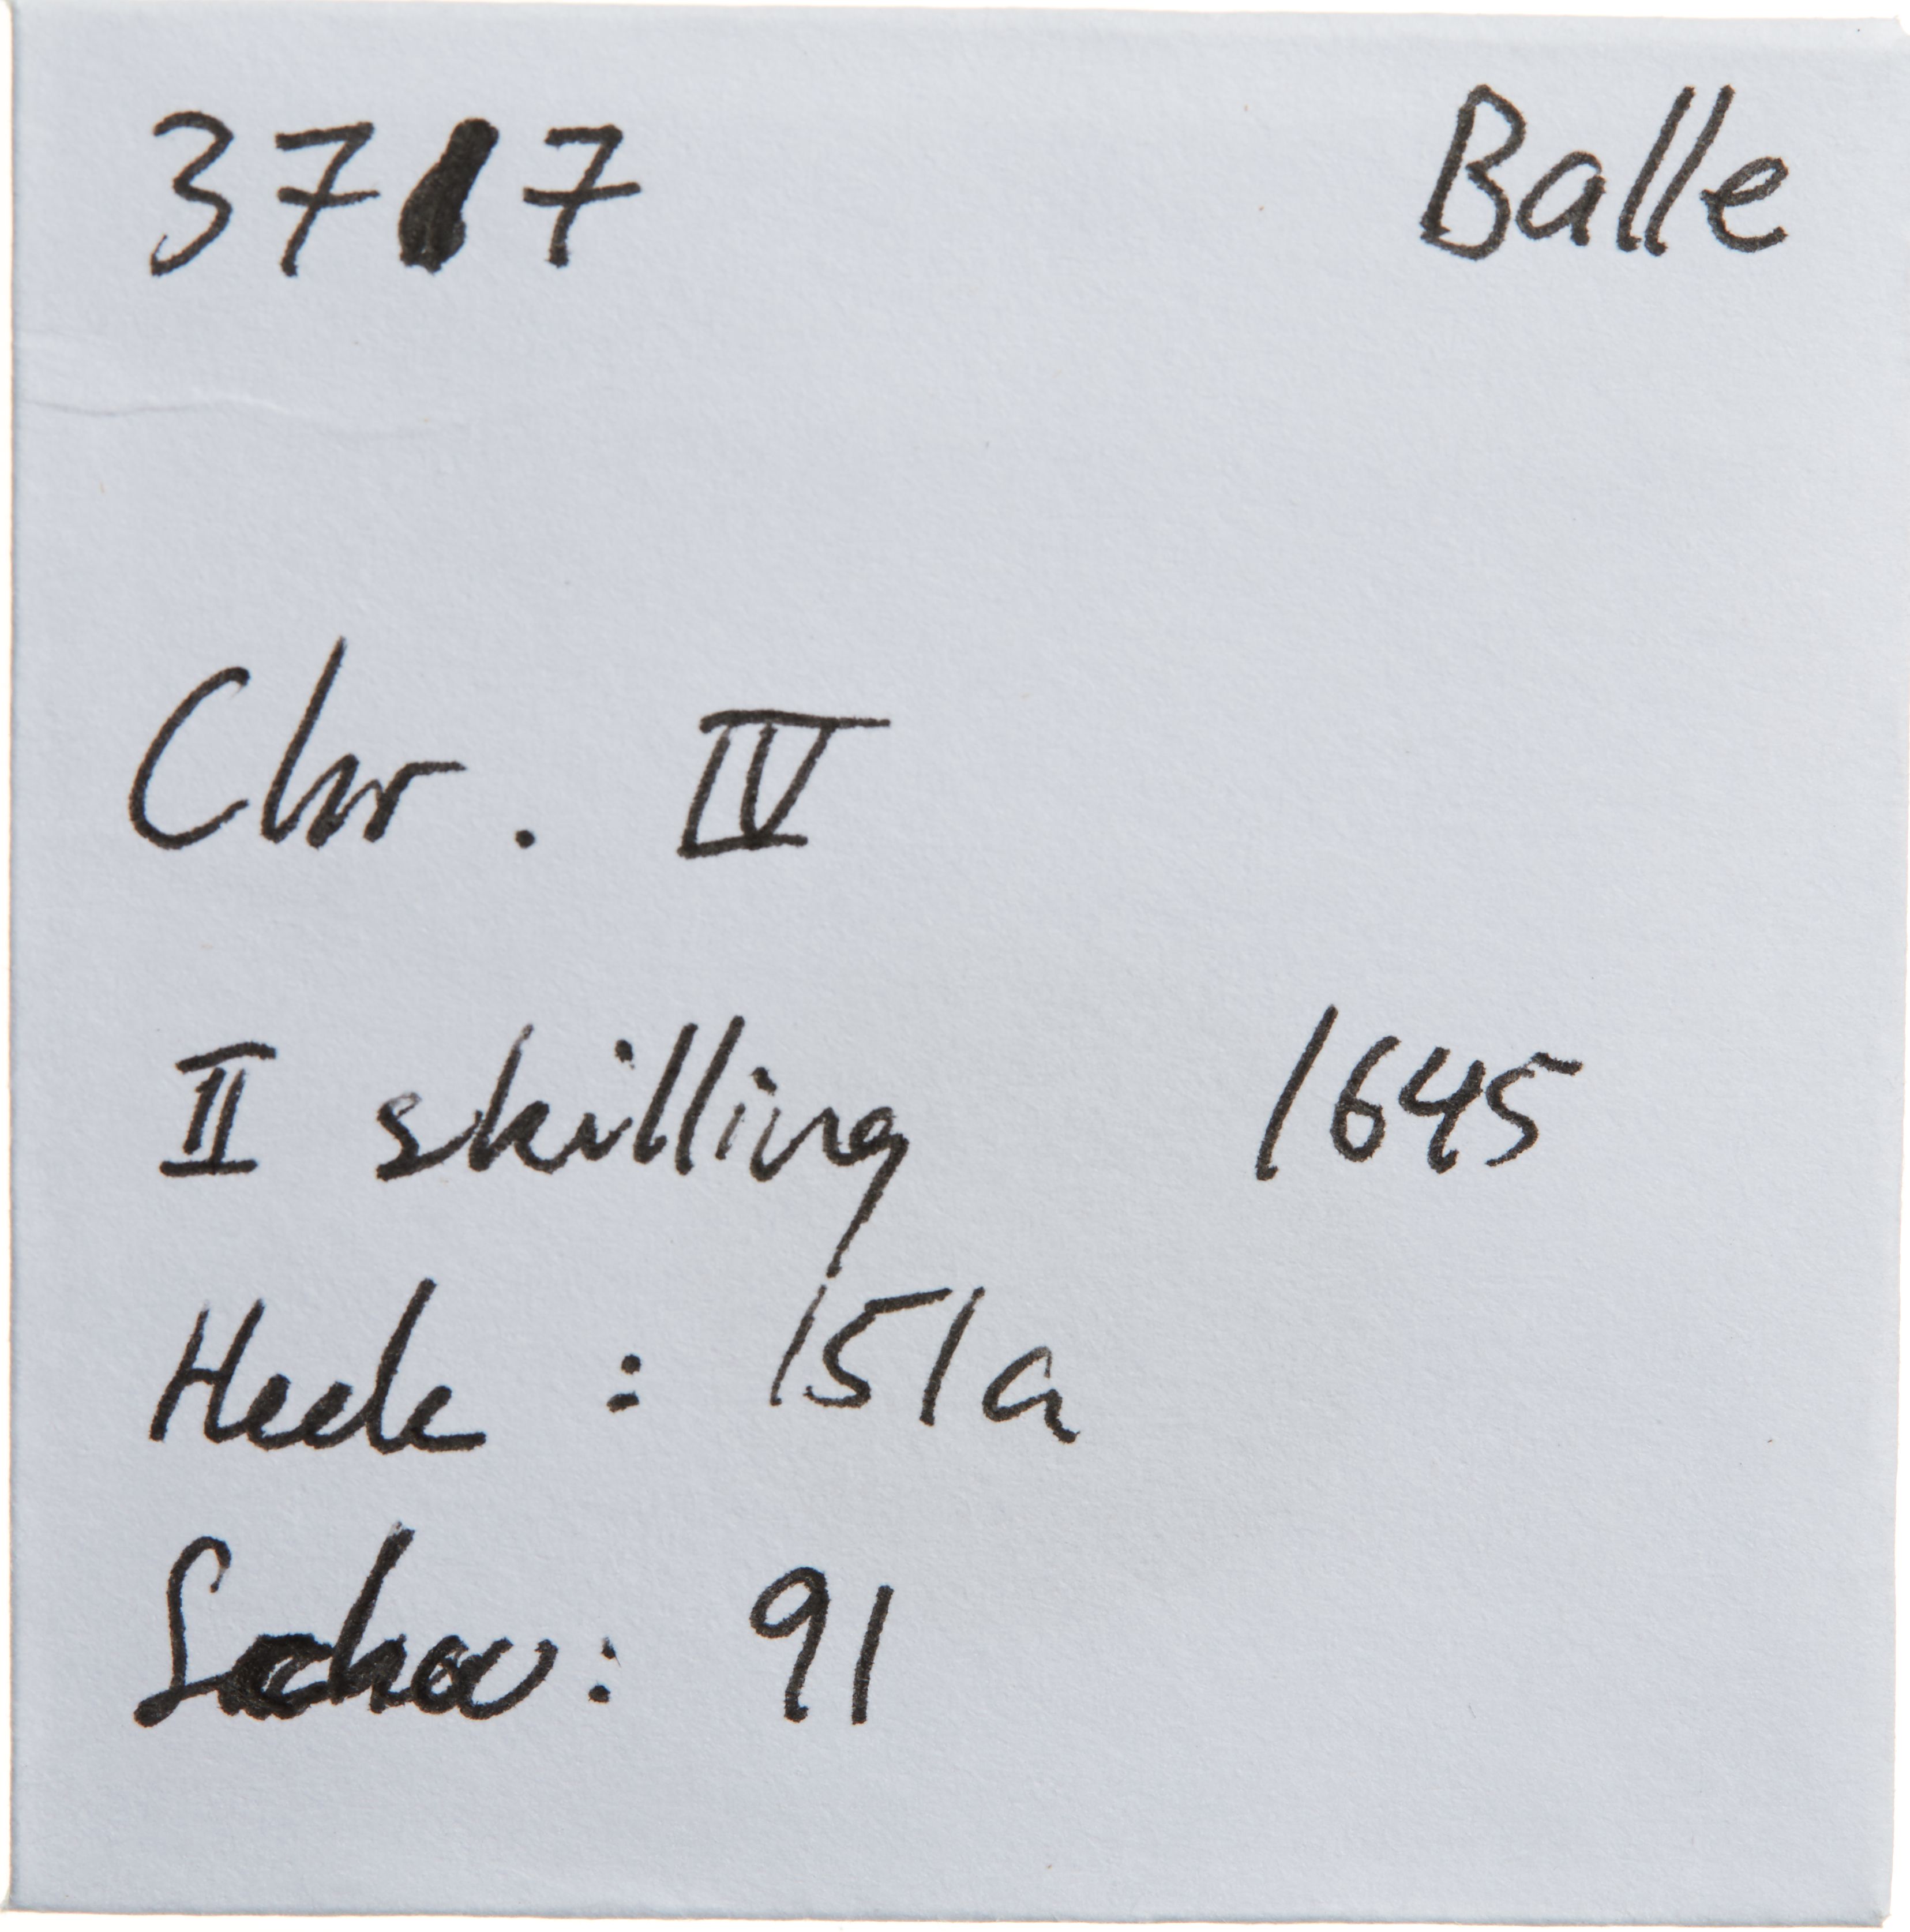 3717 Balle
Chr. IV
II skilling 1645
Hede : 151a
Schou: 91